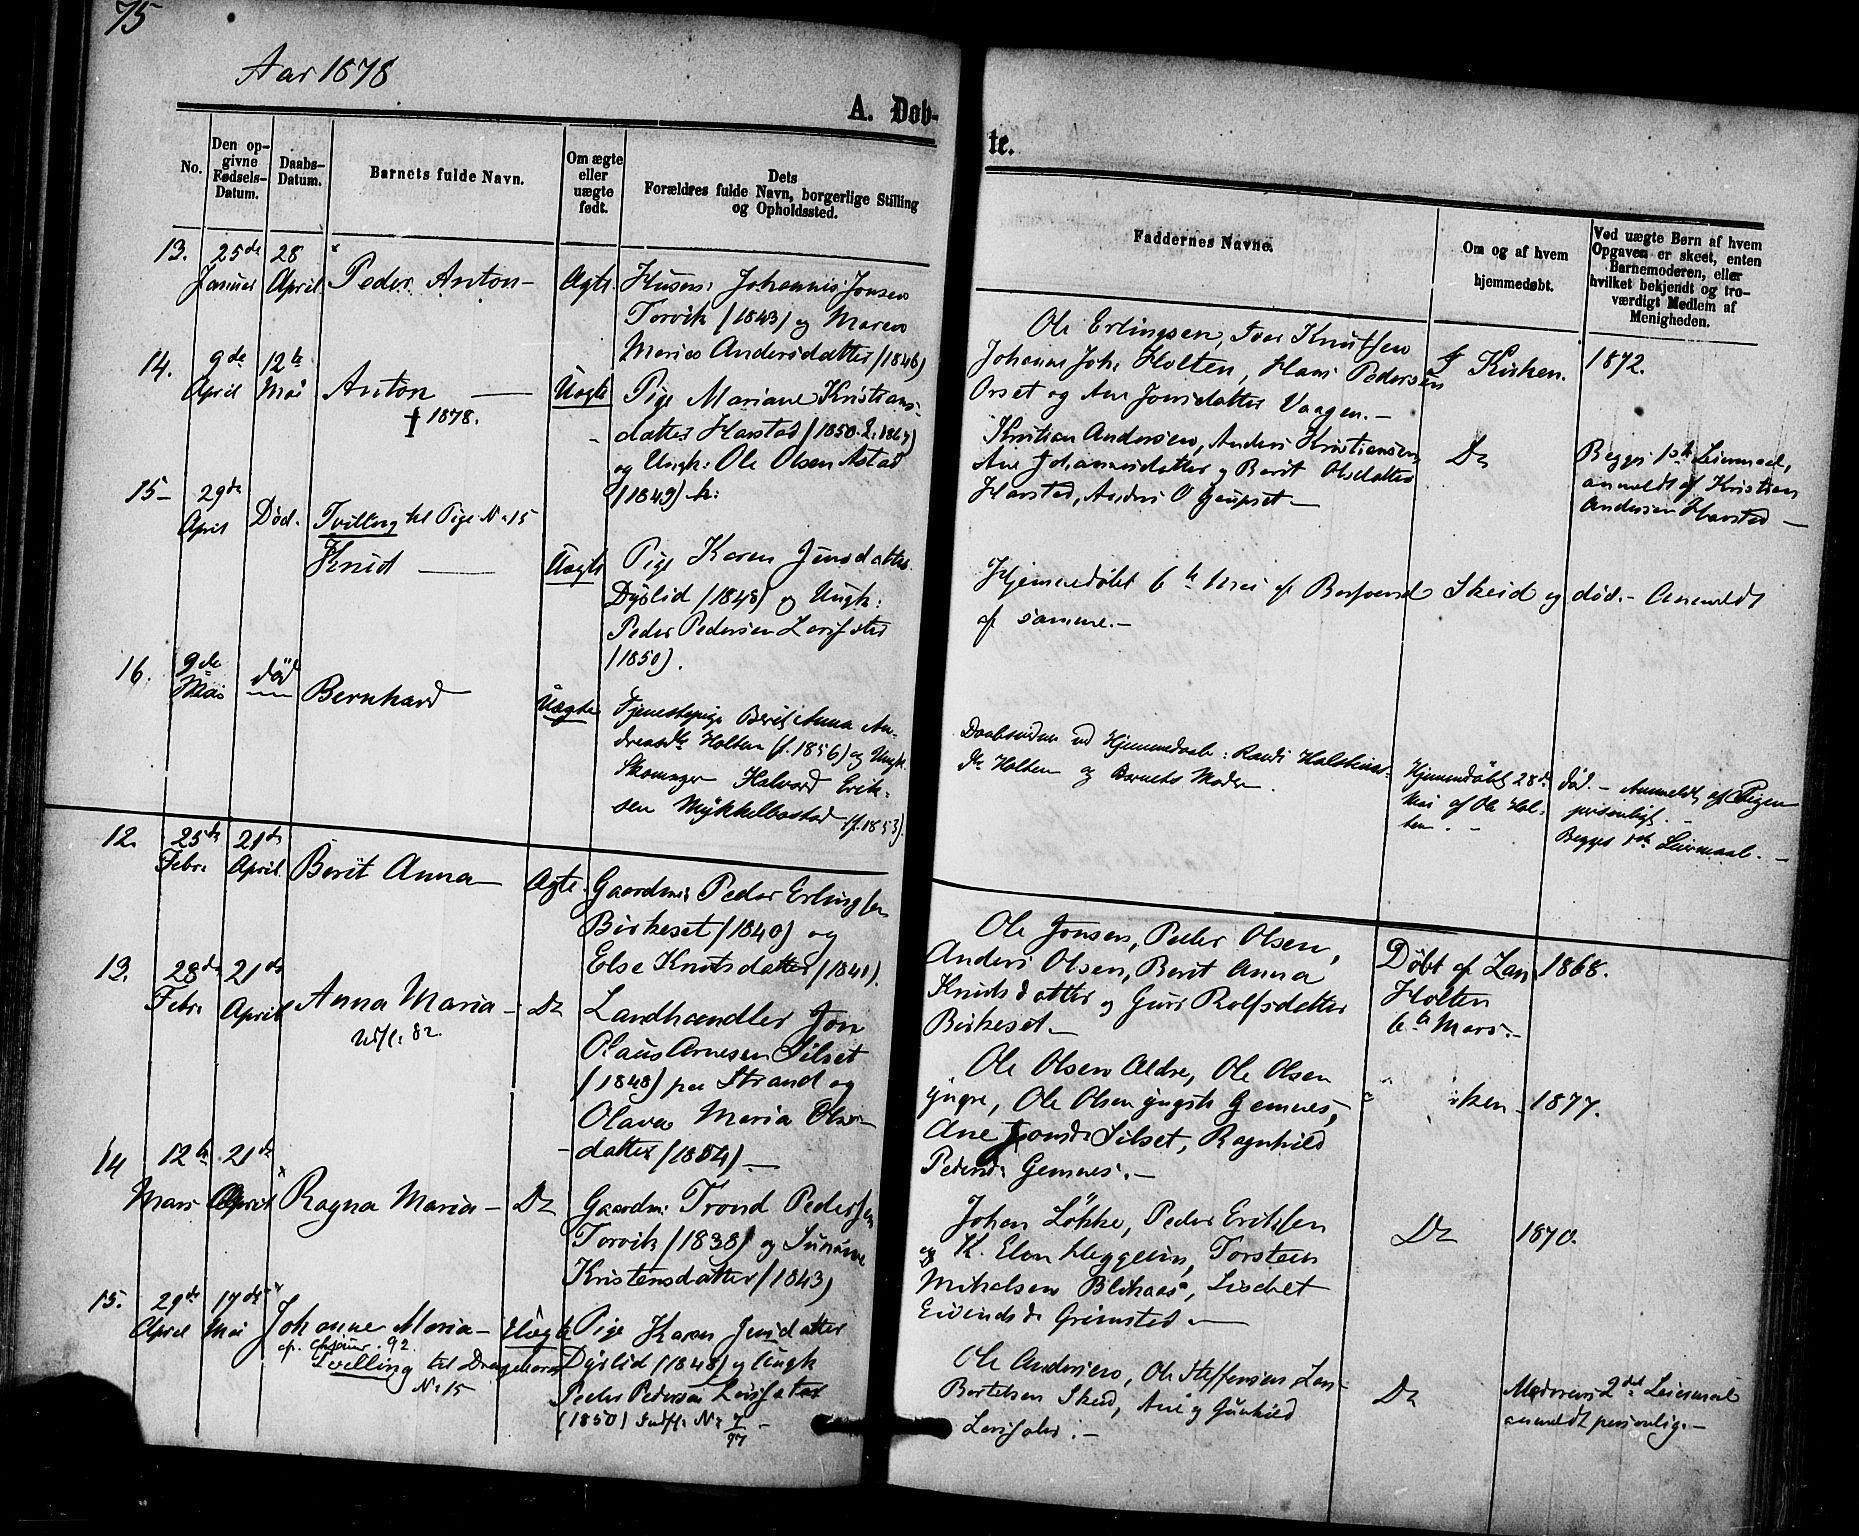 75
Aar 1878
A. Døb-
te.
No.
Den op-
givne
Fødsels-
Datum.
Daabs-
Datum.
Barnets fulde Navn.
Om ægte
eller
uægte
født.
Dets
Forældres fulde Navn, borgerlige Stilling
og Opholdssted.
Faddernes Navne.
Om og af hvem
hjemmedøbt.
Ved uægte Børn af hvem
Opgaven er skeet, enten
Barnemoderen, eller
hvilket bekjendt og tro-
værdigt Medlem af
Menigheden.
13.
25de
Januar
28
April
Peder Anton
Ægte
Husm: Johannes Jonsen
Torvik (1843) og Maren
Maria Andersdatter (1846)
Ole Erlingsen, Iver Knutsen
Johanne Joh: Holten, Hans Pedersen
Orset og Ane Jonsdatter Vaagen.-
I Kirken.
1872.
14.
9de
April
12te
Mai
Anton
† 1878.
Uægte
Pige Mariane Kristians-
datter Harstad (1850.
og Ungk: Ole Olsen Astad
(1849)
Kristian Andersen, Anders Kristiansen,
Ane Johannesdatter og Berit Olsdatter
Harstad, Anders O Gjeupset-
Do
Begges 1ste Leiermaal,
anmeldt af Kristian
Andersen Harstad-
15-
29de
April
Død.
Tvilling til Pige No 15
Knud
Uægte
Pige Karen Jensdatter
Dyrlid (1848) og Ungk:
Peder Pedersen
(1850).
Hjemmedøbt 6te Mai af Skeid og død.- Anmeldt
af samme.-
16.
9de
Mai
død
Bernhard
Uægte
Tjenestepige Berit Anna An-
dreasdtr Holten (f.1856) og Ungk.
Skomager Halvard Erik-
sen Mykkelbostad (f.1853).
Daabsvidner ved Hjemmedaab: Randi Halsteins-
dtr Holten og Barnets Moder.
Hjemmedøbt 28de
Mai af Ole Hol-
ten.
død.- Anmeldt af Pigen
personligt.
Begges 1ste Leiermaal.-
12.
25de
Febr:
21de
April
Berit Anna
Ægte.
Gaardm: Peder Erlingsen
Birkeset (1840) og
Else Knutsdatter (1841).
Ole Jonsen, Peder Olsen,
Anders Olsen, Berit Anna
Knudsdatter og Guri Rolfsdatter
Birkeset-
Døbt af Lars
Holten
6te Mars.-
1868.
13.
28de
Febr:
21de
April
Anna Maria-
Udfl: 82.
Do
Landhandler Jon
Olaus Arnesen Silset
(1848) paa Strand og
Olava Maria Ols-
datter (1854)
Ole Olsen Ældre, Ole Olsen
yngre, Ole Olsen yngste Gemnes,
Ane Jonsdr Silset, Ragnhild
Pedersdr Gemnes.-
ken.
1877.
14
12te
Mars
21de
April
Ragna Maria-
Do
Gaardm: Trond Pedersen
Torvik (1838) og
Kristensdatter (1843)
Johan Løkke, Peder Eriksen
og K. Elon Meggeim, Torsteen
Mikalsen Blikaas, Lisabet
Eivindsdr Grimsted.-
Do
1870.
15.
29de
April
17de
Mai
Johanne Maria-
92.
Tvilling til Drengebarn
No 15
Uægte
Pige Karen Jensdatter
Dyrlid (1848) og Ungk
Peder Pedersen
(1850)
Ole Andersen, Ole Steffensen Lars
Bertelsen Skeid, Ane og Gunhild
Do
Moderens 2det Leiermaal
anmeldt personlig.-